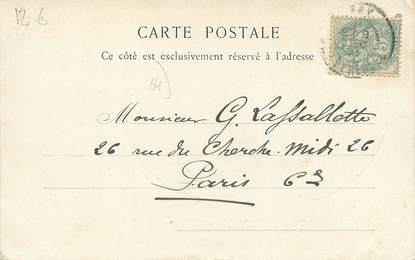 12 €
CARTE POSTALE
Ce côté est exclusivement réservé à l'adresse
Monsieur G. Lassallette
26 rue du Cherche-Midi 26
Paris 6e